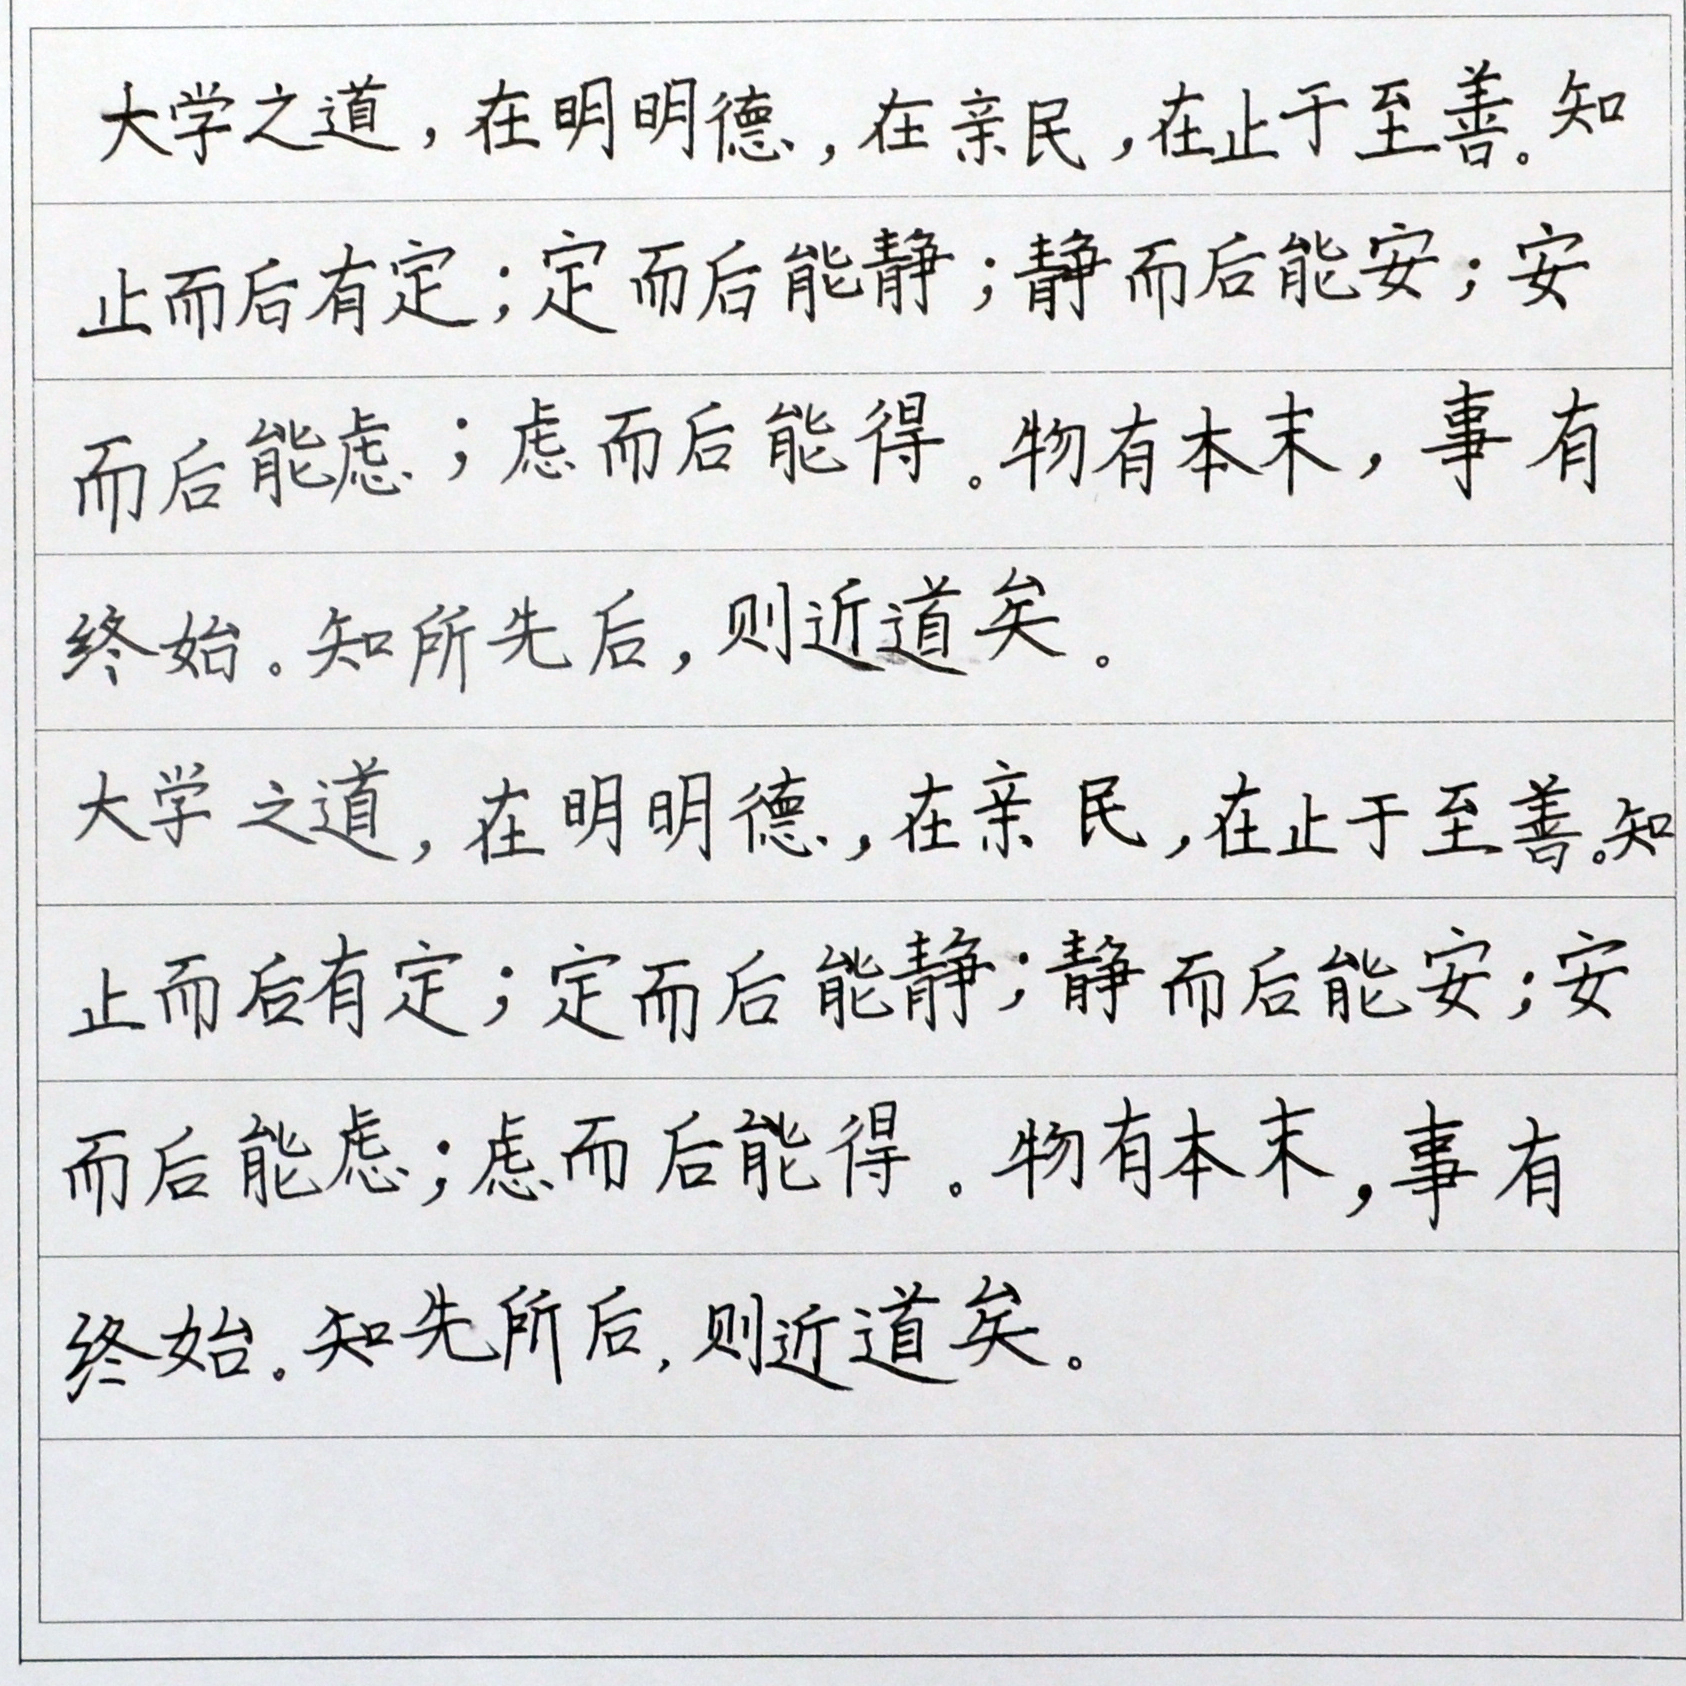 大学之道，在明明德，在亲民，在止于至善。知
止而后有定；定而后能静；静而后能安；安
而后能虑；虑而后能得。物有本末，事有
终始。知所先后，则近道矣。
大学之道，在明明德，在亲民，在止于至善。知
止而后有定；定而后能静；静而后能安；安
而后能虑；虑而后能得。物有本末，事有
终始。知先所后，则近道矣。